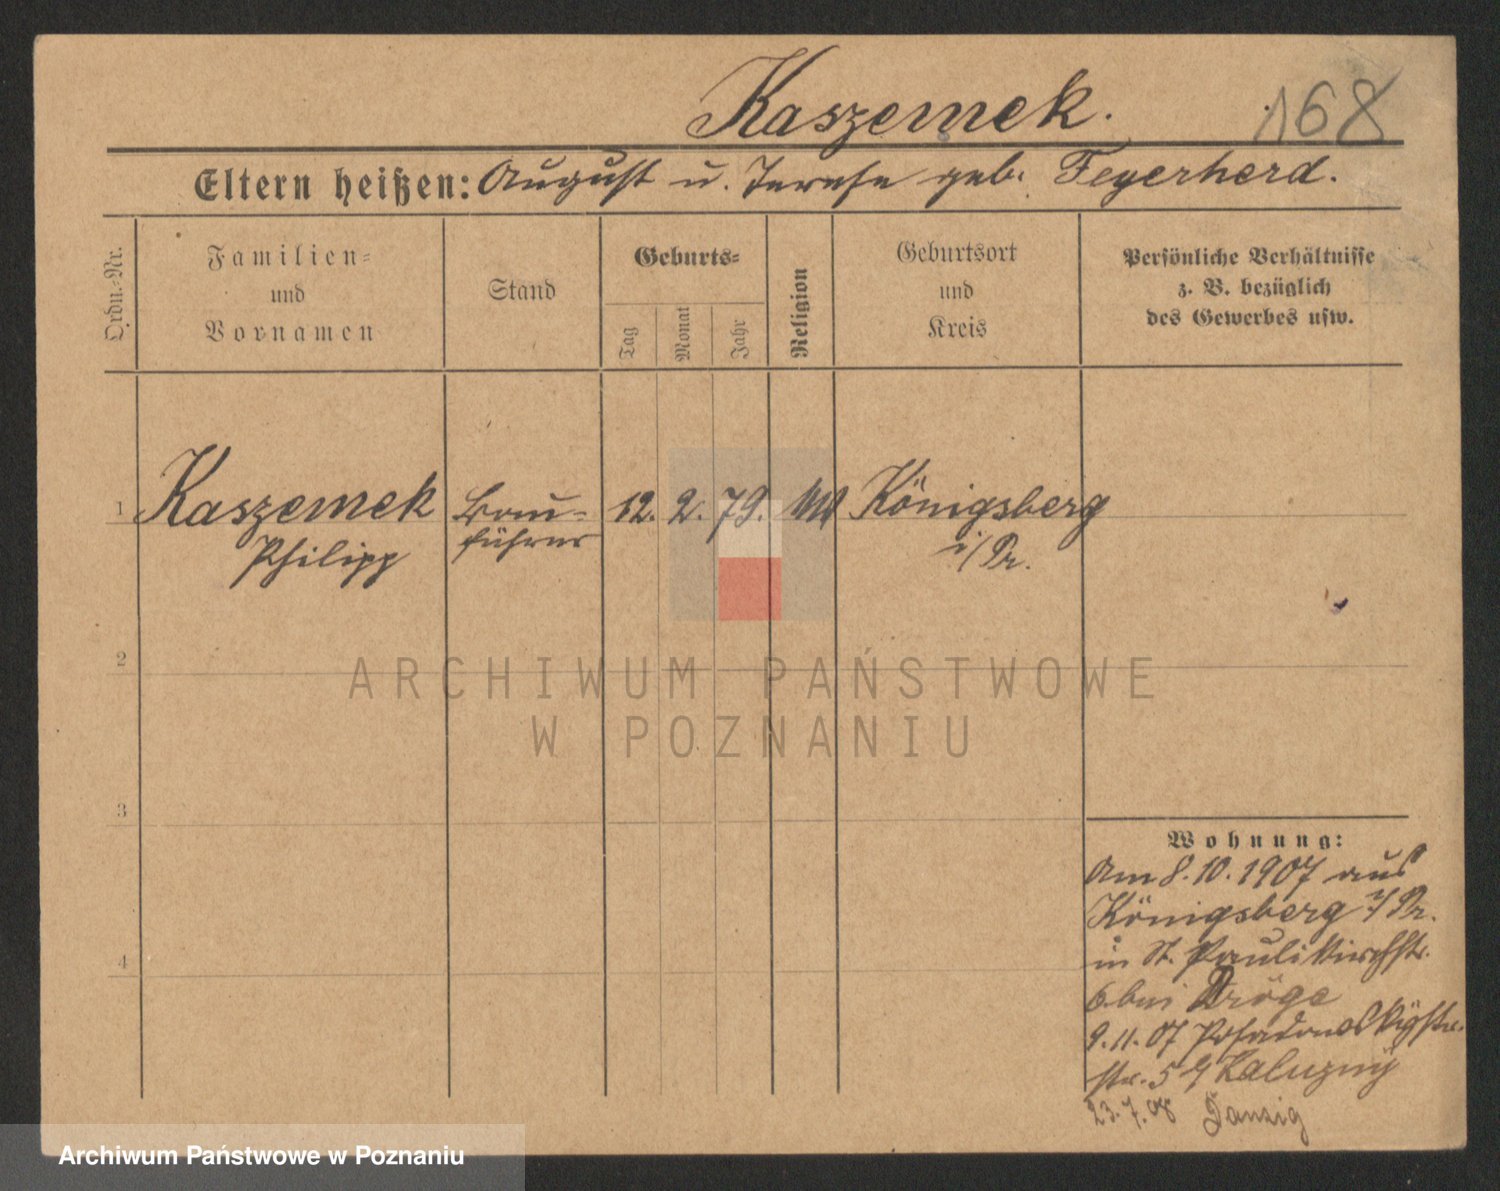 Kaszemek.
168
Eltern heißen: August u. Terese geb. Feyerherd.
Ordn.-Nr.
Familien-
und
Vornamen
Stand
Geburts-
Tag
Monat
Jahr
Religion
Geburtsort
und
Kreis
Persönliche Verhältnisse
z. B. bezüglich
des Gewerbes usw.
1
Kaszemek
Philipp
Bau-
führer
12. 2. 79.
Königsberg
i/Pr.
2
3
4
ARCHIWUM PAŃSTWOWE
W POZNANIU
Wohnung:
Am 8.10.1907 aus
Königsberg i/Pr.
in St. Paulikirchstr.
6 bei Dröge
9.11.07
str. 5 Kaluzny
23.7.08 Danzig
Archiwum Państwowe w Poznaniu